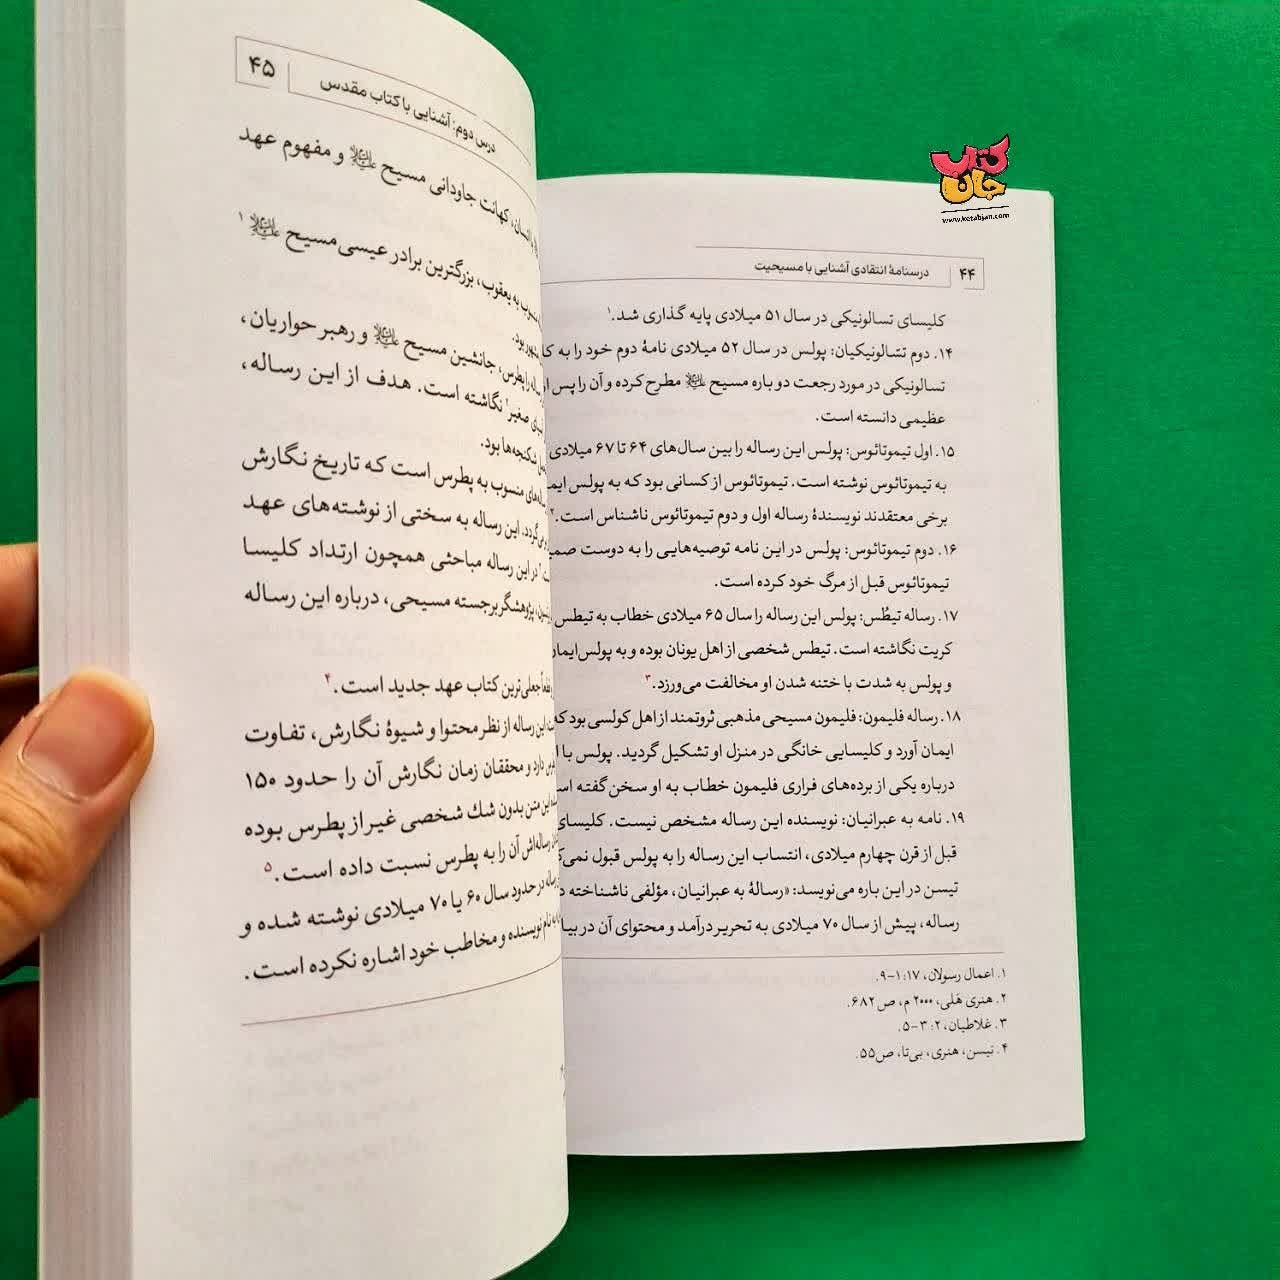 کتاب جان
www.ketabjan.com
۴۴
درسنامهٔ انتقادی آشنایی با مسیحیت
کلیسای تسالونیکی در سال ۵۱ میلادی پایه گذاری شد.۱
۱۴. دوم تسالونیکیان: پولس در سال ۵۲ میلادی نامهٔ دوم خود را به
تسالونیکی در مورد رجعت دوباره مسیح مطرح کرده و آن را پس
عظیمی دانسته است.
۱۵. اول تیموتائوس: پولس این رساله را بین سال‌های ۶۴ تا ۶۷ میلادی
به تیموتائوس نوشته است. تیموتائوس از کسانی بود که به پولس
برخی معتقدند نویسندهٔ رساله اول و دوم تیموتائوس ناشناس است.۲
۱۶. دوم تیموتائوس: پولس در این نامه توصیه‌هایی را به دوست
تیموتائوس قبل از مرگ خود کرده است.
۱۷. رساله تیطُس: پولس این رساله را سال ۶۵ میلادی خطاب به تیطس
کریت نگاشته است. تیطس شخصی از اهل یونان بوده و به پولس
و پولس به شدت با ختنه شدن او مخالفت می‌ورزد.۳
۱۸. رساله فلیمون: فلیمون مسیحی مذهبی ثروتمند از اهل کولسی بود
ایمان آورد و کلیسایی خانگی در منزل او تشکیل گردید. پولس با
درباره یکی از برده‌های فراری فلیمون خطاب به او سخن گفته
۱۹. نامه به عبرانیان: نویسنده این رساله مشخص نیست. کلیسای
قبل از قرن چهارم میلادی، انتساب این رساله را به پولس قبول
تیسن در این باره می‌نویسد: «رسالهٔ به عبرانیان، مؤلفی ناشناخته
رساله، پیش از سال ۷۰ میلادی به تحریر درآمد و محتوای آن در
۱. اعمال رسولان، ۱۷: ۱-۹.
۲. هنری هَلی، ۲۰۰۰ م، ص ۶۸۲.
۳. غلاطیان، ۲: ۳-۵.
۴. تیسن، هنری، بی‌تا، ص۵۵.
درس دوم: آشنایی با کتاب مقدس
۴۵
انسان، کهانت جاودانی مسیح و مفهوم عهد
به یعقوب، بزرگترین برادر عیسی مسیح ۱
بود.
را پطرس، جانشین مسیح و رهبر حواریان،
صغیر نگاشته است. هدف از این رساله،
شکنجه‌ها بود.
منسوب به پطرس است که تاریخ نگارش
این رساله به سختی از نوشته‌های عهد
در این رساله مباحثی همچون ارتداد کلیسا
پژوهشگر برجسته مسیحی، درباره این رساله
جعلی‌ترین کتاب عهد جدید است.۴
این رساله از نظر محتوا و شیوهٔ نگارش، تفاوت
دارد و محققان زمان نگارش آن را حدود ۱۵۰
این متن بدون شك شخصی غیر از پطرس بوده
رساله‌اش آن را به پطرس نسبت داده است.۵
در حدود سال ۶۰ یا ۷۰ میلادی نوشته شده و
نام نویسنده و مخاطب خود اشاره نکرده است.